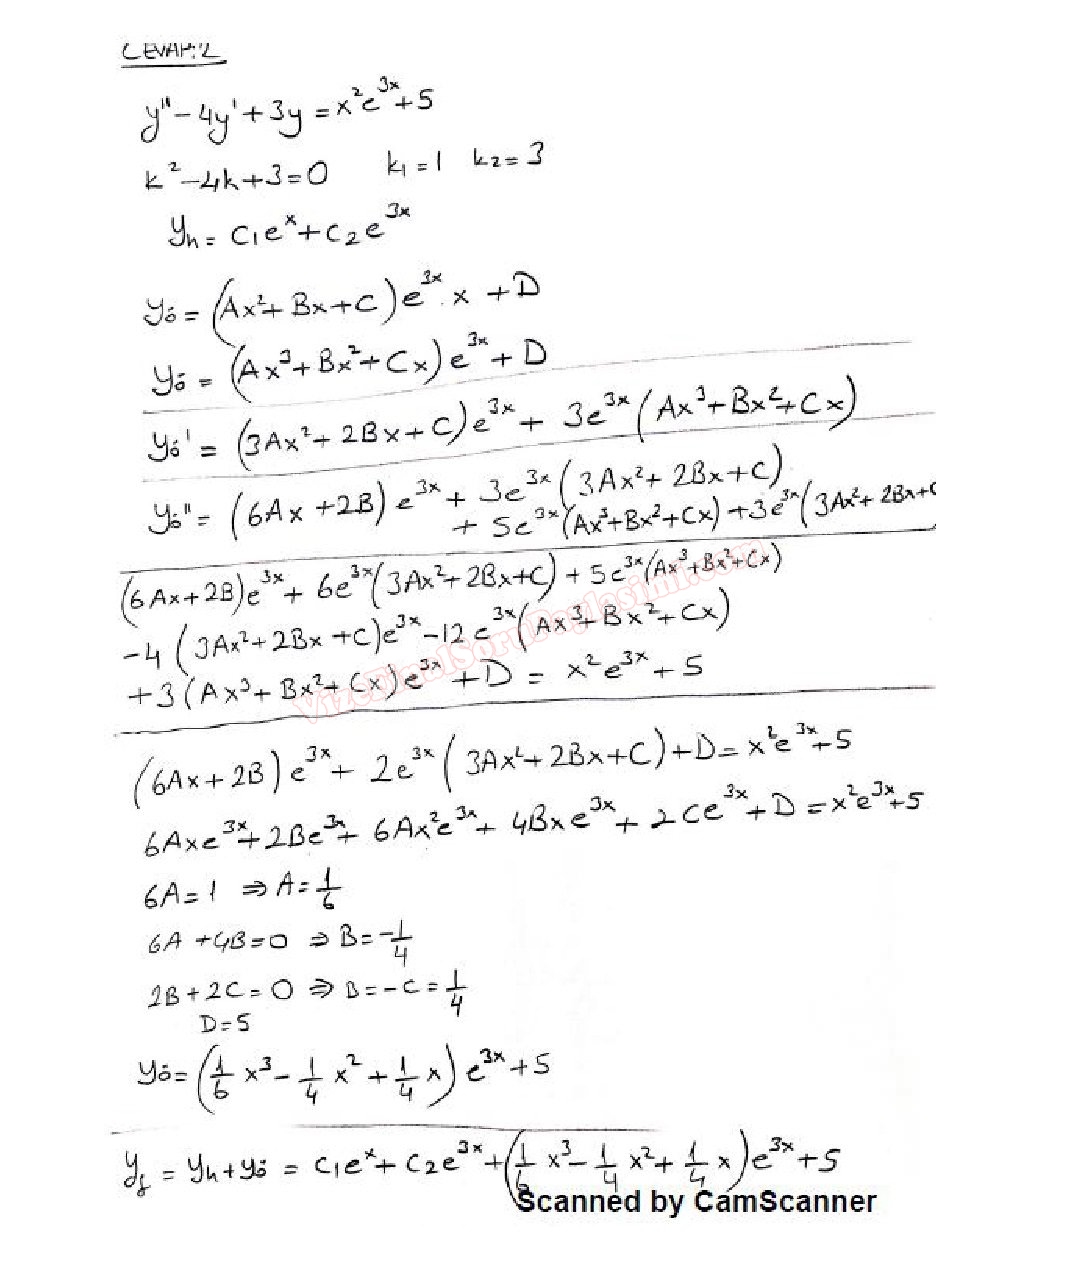 CEVAP:2
y'' - 4y' + 3y = x²e³ˣ + 5
k² - 4k + 3 = 0 k₁ = 1 k₂ = 3
yₕ = c₁eˣ + c₂e³ˣ
yö = (Ax² + Bx + C)e³ˣ.x + D
yö = (Ax³ + Bx² + Cx)e³ˣ + D
yö' = (3Ax² + 2Bx + C)e³ˣ + 3e³ˣ(Ax³ + Bx² + Cx)
yö'' = (6Ax + 2B)e³ˣ + 3e³ˣ(3Ax² + 2Bx + C)
+ 5e³ˣ(Ax³ + Bx² + Cx) + 3e³ˣ(3Ax² + 2Bx + C
(6Ax + 2B)e³ˣ + 6e³ˣ(3Ax² + 2Bx + C) + 5e³ˣ(Ax³ + Bx² + Cx)
-4(3Ax² + 2Bx + C)e³ˣ - 12e³ˣ(Ax³ + Bx² + Cx)
+3(Ax³ + Bx² + Cx)e³ˣ + D = x²e³ˣ + 5
VizeFinalSoruPaylasimi.com
(6Ax + 2B)e³ˣ + 2e³ˣ(3Ax² + 2Bx + C) + D = x²e³ˣ + 5
6Axe³ˣ + 2Be³ˣ + 6Ax²e³ˣ + 4Bxe³ˣ + 2Ce³ˣ + D = x²e³ˣ + 5
6A = 1 ⇒ A = 1/6
6A + 4B = 0 ⇒ B = -1/4
2B + 2C = 0 ⇒ B = -C = 1/4
D = 5
yö = (1/6 x³ - 1/4 x² + 1/4 x)e³ˣ + 5
y_g = yₕ + yö = c₁eˣ + c₂e³ˣ + (1/6 x³ - 1/4 x² + 1/4 x)e³ˣ + 5
Scanned by CamScanner